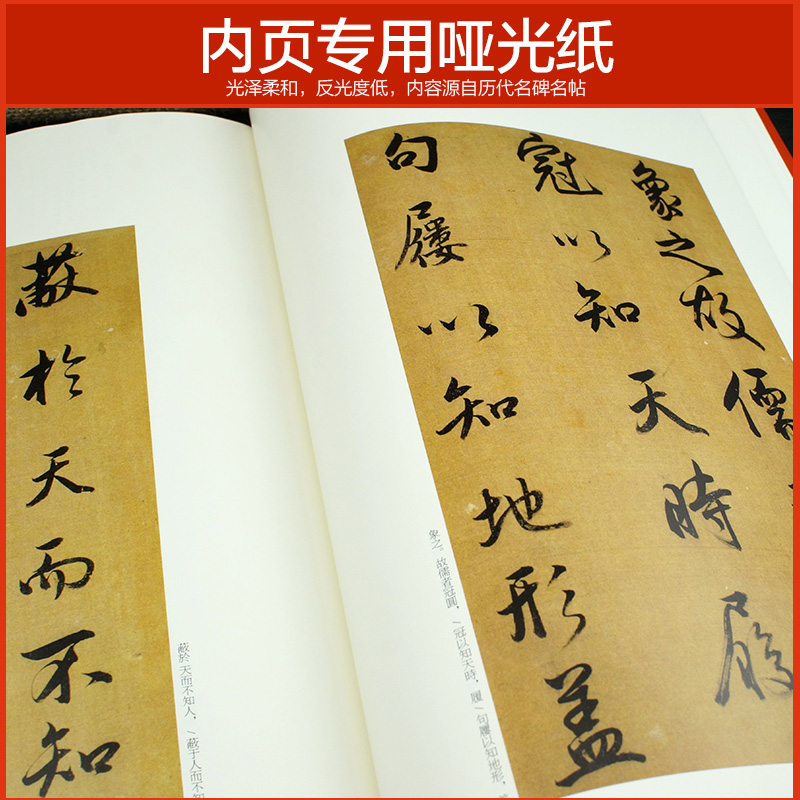 内页专用哑光纸
光泽柔和，反光度低，内容源自历代名碑名帖
象之故儒
冠以知天時履
句屨以知地形蓋
象之。故儒者冠圓，/冠以知天時，履/句屨以知地形，
蔽於天而不知
蔽於天而不知人，/蔽于人而不知